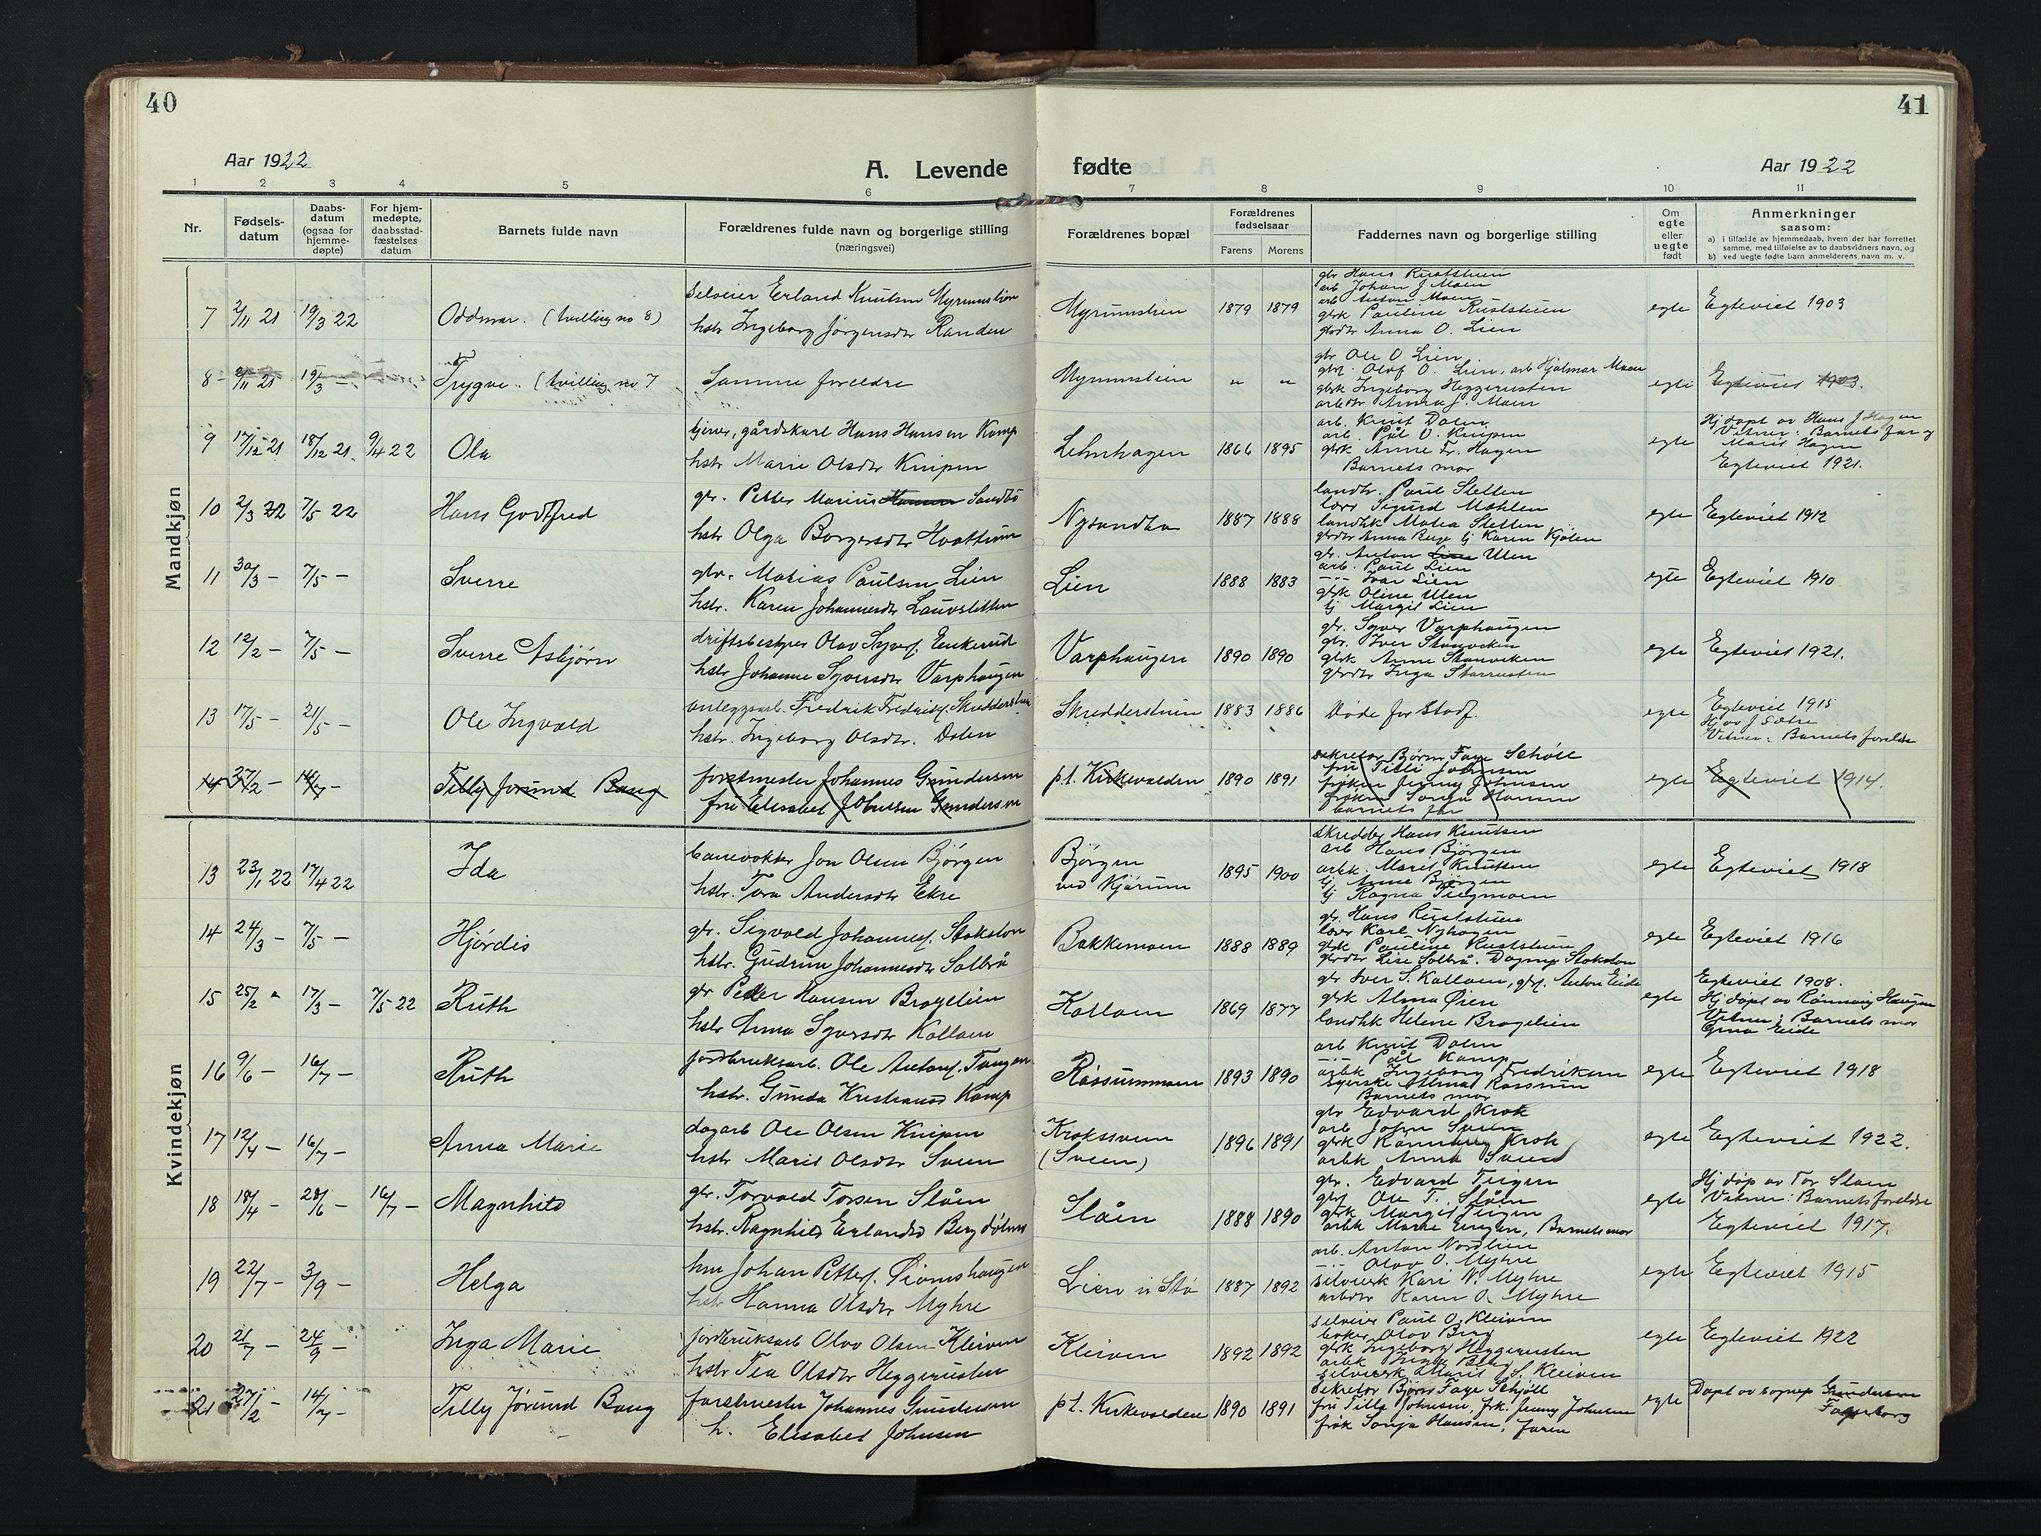 40
41
Aar 1922
A. Levende
fødte
Aar 1922
1 2 3 4 5 6 7 8 9 10 11
Nr.
Fødsels-
datum
Daabs-
datum
(ogsaa for
hjemme-
døpte)
For hjem-
medøpte,
daabsstad-
fæstelses
datum
Barnets fulde navn
Forældrenes fulde navn og borgerlige stilling
(næringsvei)
Forældrenes bopæl
Forældrenes
fødselsaar
Farens Morens
Faddernes navn og borgerlige stilling
Om
egte
eller
uegte
født
Anmerkninger
saasom:
a) i tilfælde av hjemmedaab, hvem der har forrettet
samme, med tilføielse av to daabsvidners navn, og
b) ved uegte fødte barn anmelderens navn m. v.
Mandkjøn
7 2/11 21 19/3 22 Oddmar. (tvilling no 8)
selveier Erland Knutsen Myrumslien
hstr Ingeborg Jørgensdtr Randen
Myrumslien 1879 1879
gbr Hans Ruststuen
arb Johan J Moen
arb Anton Moen
gbrk Pauline Ruststuen
gbrdtr Anna O. Lien
egte Egteviet 1903
8 2/11 21 19/3 - Trygve. (tvilling no 7
Samme foreldre
Myrumslien " "
gbr Ole O Lien
gbrs. Olaf O. Lien, arb Hjalmar Moen
gbrk Ingeborg Heggerusten
arbdtr Anna J. Moen
egte Egteviet 1903.
9 17/12 21 18/12 21. 9/4 22 Ola
tjener, gårdskarl Hans Hansen Kamp
hstr Marie Olsdtr Knipen
Lehnhagen 1866 1895
arb. Knut Dalen
arb. Pål O. Knipen
gbrk Anne Fr. Hagen
Barnets mor
egte
Hj døpt av Hans J Hagen
Vitner: Barnets far og
Marit Hagen
Egteviet 1921.
10 2/3 22 7/5 22 Hans Godtfred
gbr. Petter Marius Hansen Sandbo
hstr Olga Borgersdtr Hvattum
Nysandbo 1887 1888
landh. Paul Sletten
lærer Sigurd Mæhlen
landhk Matea Sletten
gbrdtr Anna Berge tj Karen Kjølen
egte Egteviet 1912
11 30/3 - 7/5 - Sverre
gbr. Mathias Paulsen Lien
hstr. Karen Johannesdtr Lauvslitten
Lien 1888 1883
gbr. Anton Lien Ulen
arb. Paul Lien
--- Ivar Lien
gbrk Oline Ulen
tj Margit Lien
egte Egteviet 1910
12 12/2 - 7/5 - Sverre Asbjørn
driftsbestyrer Olav Syvers. Enkerud
hstr Johanne Syversdtr Varphaugen
Varphaugen 1890 1890
gbr. Syver Varphaugen
gbr. Iver Stanviken
gbrk Anne Stanviken
gbrdtr Inga Storrusten
egte Egteviet 1921.
13 17/5 - 21/5 - Ole Ingvald
anleggsarb. Fredrik Fredriks. Skredderstuen
hstr. Ingeborg Olsdtr. Dalen
Skredderstuen 1883 1886
Døde før Stadf.
egte
Egteviet 1915
Hj av J Sætre
Vitner: Barnets foreldre
14 27/2 - 14/7 - Tilly Jorund Bang
forstmester Johannes Gundersen
fru Elisabet Johnsen Gundersen
p.t. Kirkevolden 1890 1891
sekretær Bjørn Faye Schjøll
fru Tilli Johnsen
frøken Jenny Johnsen
frøken Sonja Hansen
barnets far
egte Egteviet 1914.
Kvindekjøn
13 23/1 22 17/4 22 Ida
banevokter Jon Olsen Bjørgen
hstr. Tora Andersdtr Ekre
Bjørgen
ved Kjørum
1895 1900
skredder Hans Knutsen
arb Hans Bjørgen
arbk. Marit Knutsen
tj Anne Bjørgen
tj Ragna Teigmoen
egte Egteviet 1918
14 24/3 - 7/5 - Hjørdis
gbr. Sigvald Johannes. Stokstøn
hstr. Gudrun Johannesdtr Solbrå
Bakkemoen 1888 1889
gbr. Hans Ruststuen
lærer Karl Nyhagen
gbrk Pauline Ruststuen
gbrdtr Lise Solbrå. Dagny Stokstøn
egte Egteviet 1916
15 25/2 " 17/3 - 7/5 22 Ruth
gbr Peder Hansen Bragelien
hstr Anna Syversdtr Kolloen
Kolloen 1869 1877
gbr Iver S. Kolloen, gbrs. Anton Eide
gbrk Alma Øren
landhk Helene Bragelien
egte
Egteviet 1908.
Hj døpt av Rønnaug Haugen
Vitner: Barnets mor
Gina Eide
16 9/6 - 16/7 - Ruth
jordbruksarb. Ole Antons. Tangen
hstr. Gunda Kristiansd Kamp
Rossummoen 1893 1890
arb Knut Dalen
--- Pål Kamp
arbk Ingeborg Fredriksen
syerske Alma Rossum
Barnets mor
egte Egteviet 1918
17 12/4 - 16/7 - Anna Marie
dagarb Ole Olsen Knipen
hstr Marit Olsdtr Sveen
Kroksveen
(Sveen)
1896 1891
gbr Edvard Krok
arb John Sveen
gbrk Rønnaug Krok
arbk Anna Sveen
egte Egteviet 1922.
18 18/4 - 28/6 - 16/7 - Magnhild
gbr. Torvald Torsen Slåen
hstr. Ragnhild Erlandsd Bergdølmo
Slåen 1888 1890
gbr. Edvard Teigen
gbrs Ole T. Slåen
gbrk Margit Teigen
arbk Marie Engen, Barnets mor
egte
Hj døp av Tor Slåen
Vitner: Barnets foreldre
Egteviet 1917.
19 22/7 - 3/9 - Helga
hm Johan Petters. Siomshaugen
hstr Hanna Olsdtr Myhre
Lien i Stø 1887 1892
arb. Anton Nordlien
--- Olav O. Myhre
selveierk Kari N. Myhre
arbdtr Karen O. Myhre
egte Egteviet 1915
20 21/7 - 24/9 - Inga Marie
jordbruksarb Olav Olsen Kleiven
hstr Tea Olsdtr Heggerusten
Kleiven 1892 1892
selveier Paul O. Kleiven
baker Olav Berg
gbrk Ingeborg Heggerusten
arbk Inga Berg
selveierk Marit S. Kleiven
egte Egteviet 1922
21 27/2 - 14/7 - Tilly Jørund Bang
forstmester Johannes Gundersen
h. Elisabet Johnsen
p.t. Kirkevolden 1890 1891
sekretær Bjørn Faye Schjøll
fru Tilla Johnsen, frk. Jenny Johnsen
frøk Sonja Hansen, faren
egte
Døpt av sognep Gundersen
Fagerborg